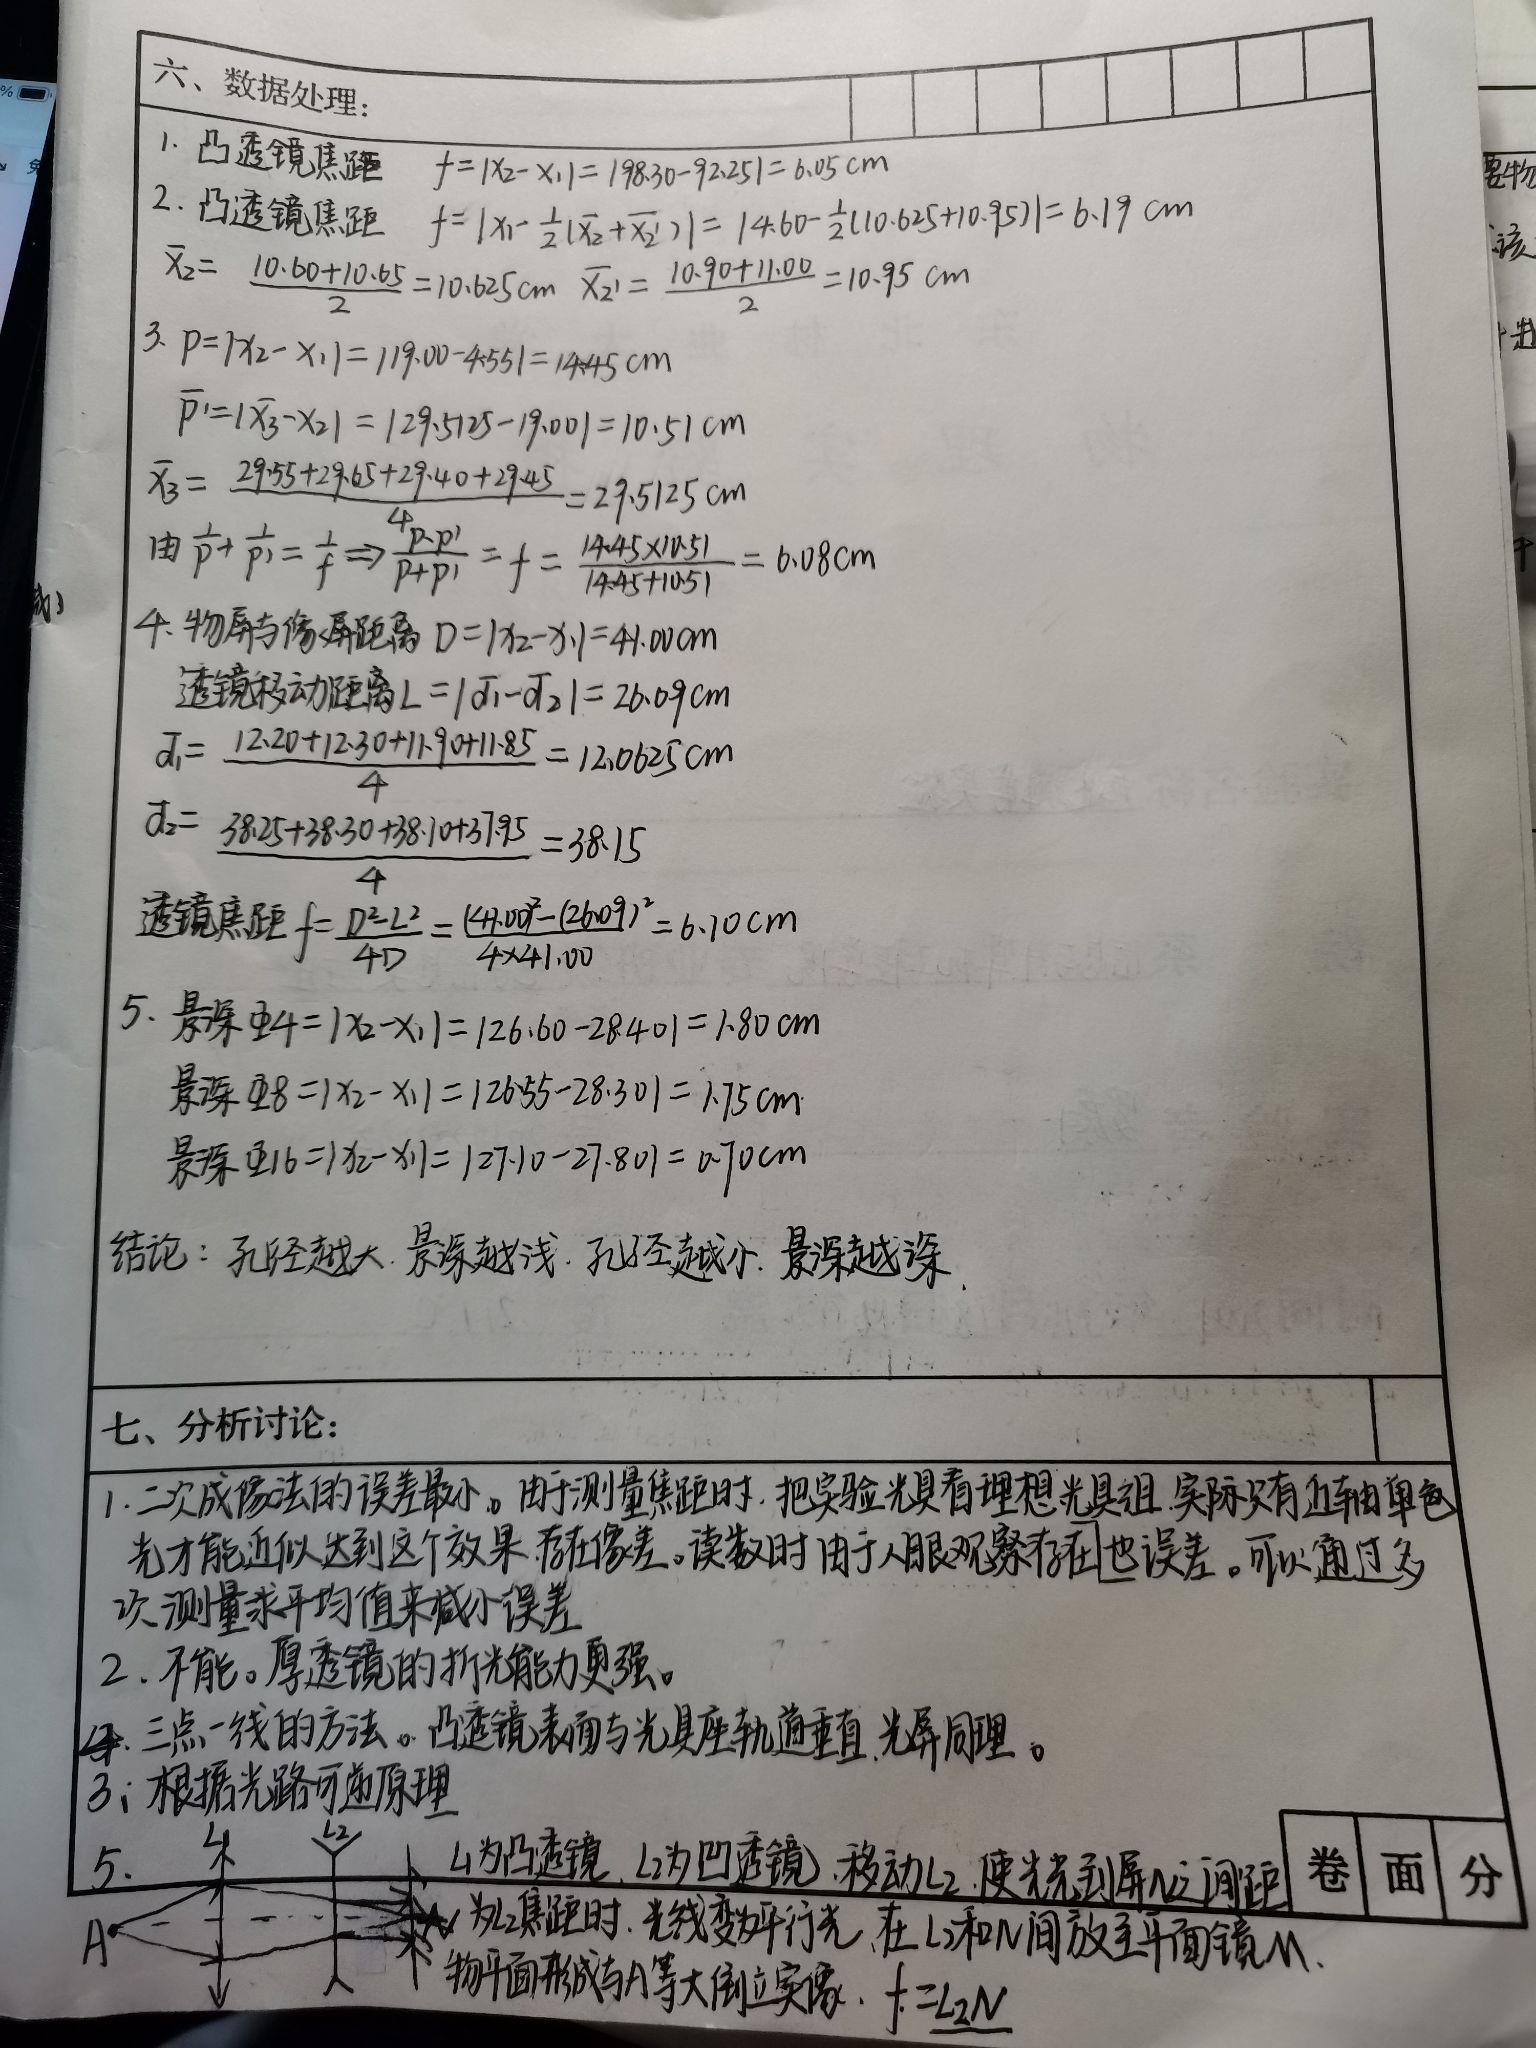 六、数据处理:
1. 凸透镜焦距 f=|x₂-x₁|=|98.30-92.25|=6.05cm
2. 凸透镜焦距 f=|x₁-½(x̄₂+x̄₂')|=|4.60-½(10.625+10.95)|=6.19 cm
x̄₂= (10.60+10.65)/2 =10.625cm x̄₂'= (10.90+11.00)/2 =10.95 cm
3. P=|x₂-x₁|=|19.00-4.55|=14.45cm
P̄'=|x̄₃-x₂|=|29.5125-19.00|=10.51cm
x̄₃= (29.55+29.65+29.40+29.45)/4 =29.5125cm
由 1/P+1/P'=1/f ⇒ P·P'/(P+P') = f = (14.45×10.51)/(14.45+10.51) = 6.08cm
4. 物屏与像屏距离 D=|x₂-x₁|=41.00cm
透镜移动距离L=|d̄₁-d̄₂|=26.09cm
d̄₁= (12.20+12.30+11.90+11.85)/4 =12.0625cm
d̄₂= (38.25+38.30+38.10+37.95)/4 =38.15
透镜焦距 f= (D²-L²)/4D = ((41.00)²-(26.09)²)/(4×41.00) =6.10cm
5. 景深Φ4=|x₂-x₁|=|26.60-28.40|=1.80cm
景深Φ8=|x₂-x₁|=|26.55-28.30|=1.75cm
景深Φ16=|x₂-x₁|=|27.10-27.80|=0.70cm
结论: 孔径越大.景深越浅.孔径越小.景深越深.
七、分析讨论:
1.二次成像法的误差最小。由于测量焦距时.把实验光具看理想光具组.实际只有近轴单色
光才能近似达到这个效果.存在像差。读数时由于人眼观察存在也误差。可以通过多
次测量求平均值来减小误差
2.不能。厚透镜的折光能力更强。
4.三点一线的方法。凸透镜表面与光具座轨道垂直.光屏同理。
3; 根据光路可逆原理
5. L₁ L₂ L₁为凸透镜.L₂为凹透镜.移动L₂.使光光到屏N之间距
卷面分
A N 为L₂焦距时.光线变为平行光.在L₂和N间放至平面镜M.
物平面形成与A等大倒立实像. f=L₂N